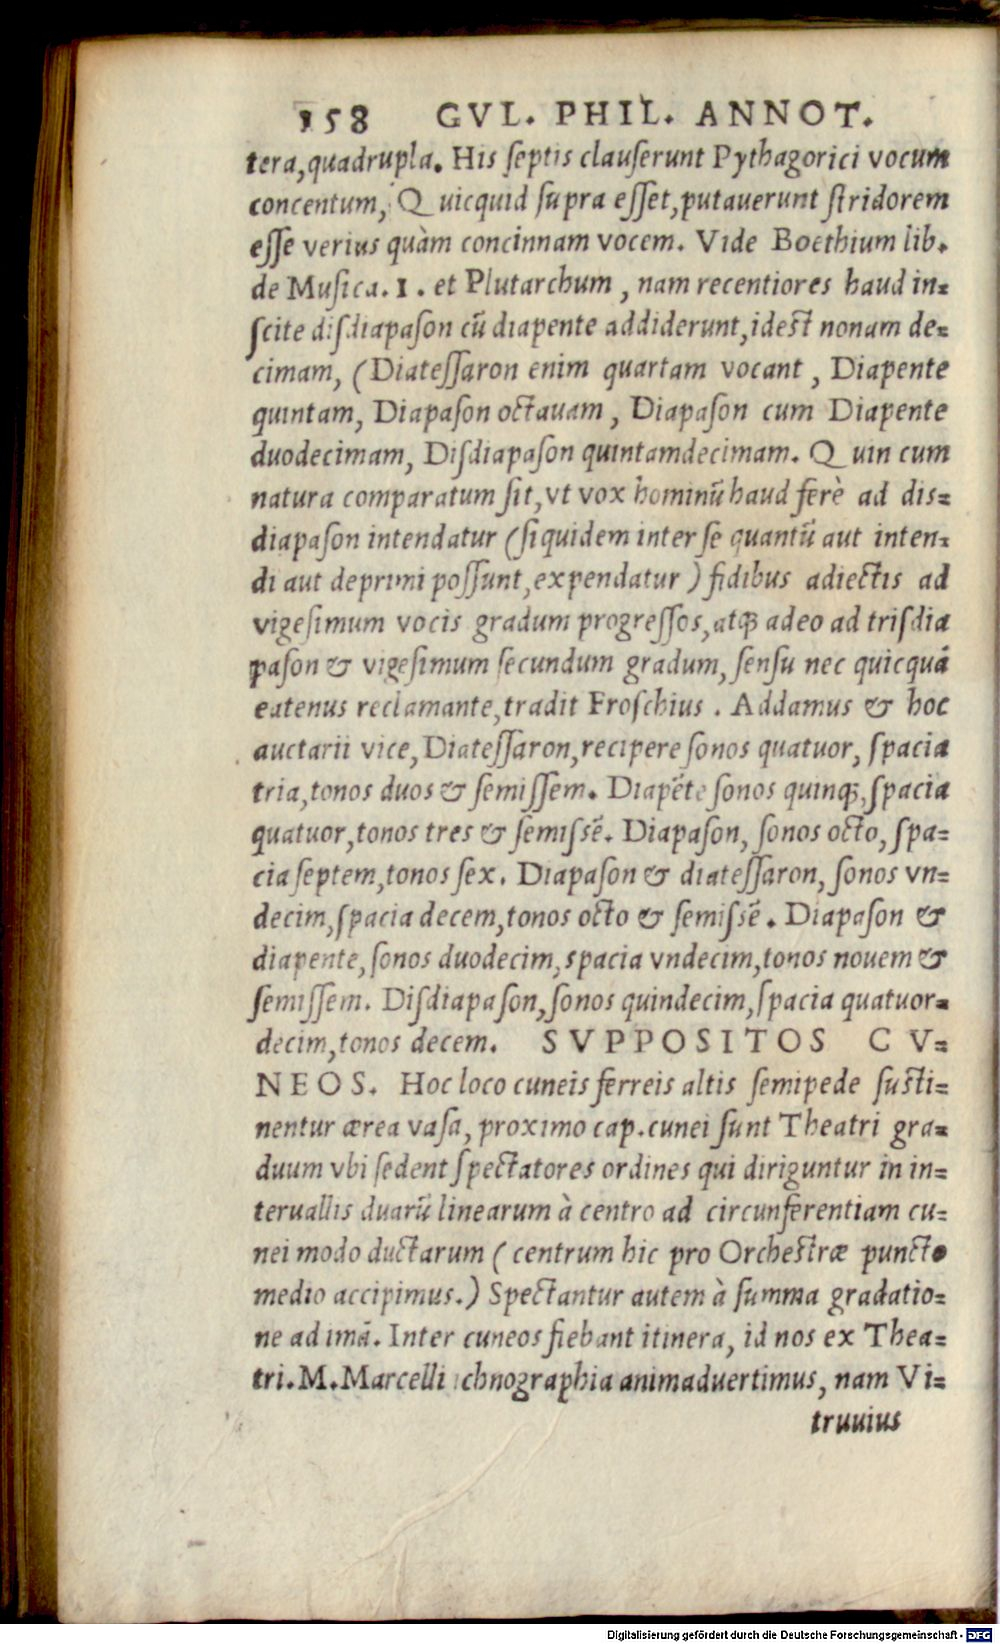 158 GVL. PHIL. ANNOT.
tera,quadrupla. His septis clauserunt Pythagorici vocum
concentum, Quicquid supra esset,putauerunt stridorem
esse verius quàm concinnam vocem. Vide Boethium lib.
de Musica. 1. et Plutarchum, nam recentiores haud in=
scite disdiapason cū diapente addiderunt,idest nonam de=
cimam, (Diatessaron enim quartam vocant, Diapente
quintam, Diapason octauam, Diapason cum Diapente
duodecimam, Disdiapason quintamdecimam. Quin cum
natura comparatum sit,vt vox hominū haud ferè ad dis=
diapason intendatur (siquidem inter se quantū aut inten=
di aut deprimi possunt,expendatur) fidibus adiectis ad
vigesimum vocis gradum progressos,atq; adeo ad trisdia
pason & vigesimum secundum gradum, sensu nec quicquā
eatenus reclamante,tradit Froschius. Addamus & hoc
auctarii vice, Diatessaron,recipere sonos quatuor, spacia
tria,tonos duos & semissem. Diapēte sonos quinq;,spacia
quatuor,tonos tres & semissē. Diapason, sonos octo, spa=
cia septem,tonos sex. Diapason & diatessaron, sonos vn=
decim,spacia decem,tonos octo & semissē. Diapason &
diapente,sonos duodecim,spacia vndecim,tonos nouem &
semissem. Disdiapason,sonos quindecim,spacia quatuor=
decim,tonos decem. SVPPOSITOS CV=
NEOS. Hoc loco cuneis ferreis altis semipede susti=
nentur ærea vasa, proximo cap.cunei sunt Theatri gra=
duum vbi sedent spectatores ordines qui diriguntur in in=
teruallis duarū linearum à centro ad circunferentiam cu=
nei modo ductarum (centrum hic pro Orchestræ puncto
medio accipimus.) Spectantur autem à summa gradatio=
ne ad imā. Inter cuneos fiebant itinera, id nos ex Thea=
tri.M.Marcelli ichnographia animaduertimus, nam Vi=
truuius
Digitalisierung gefördert durch die Deutsche Forschungsgemeinschaft - DFG